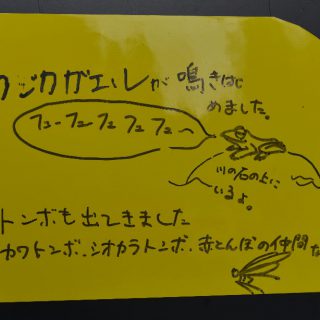 カジカガエルが鳴きはじ
めました。
フュ-フュ-フュフュフュ〜
川の石の上に
いるよ。
トンボも出てきました
カワトンボ、シオカラトンボ、赤とんぼの仲間な